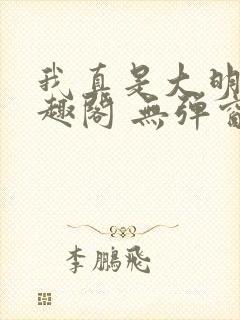 我真是大明
趣閣 無彈窗
李鵬飛